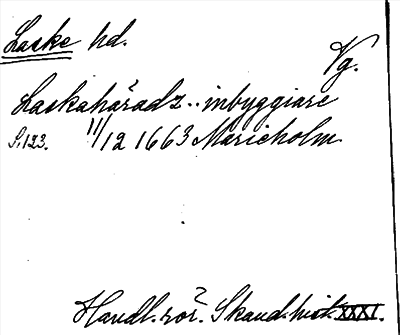 Laske hd.
Vg.
Laskahäradz.. inbyggiare
S.123. 11/12 1663 Marieholm.
Handl. rör. Skand. hist. XXXI.